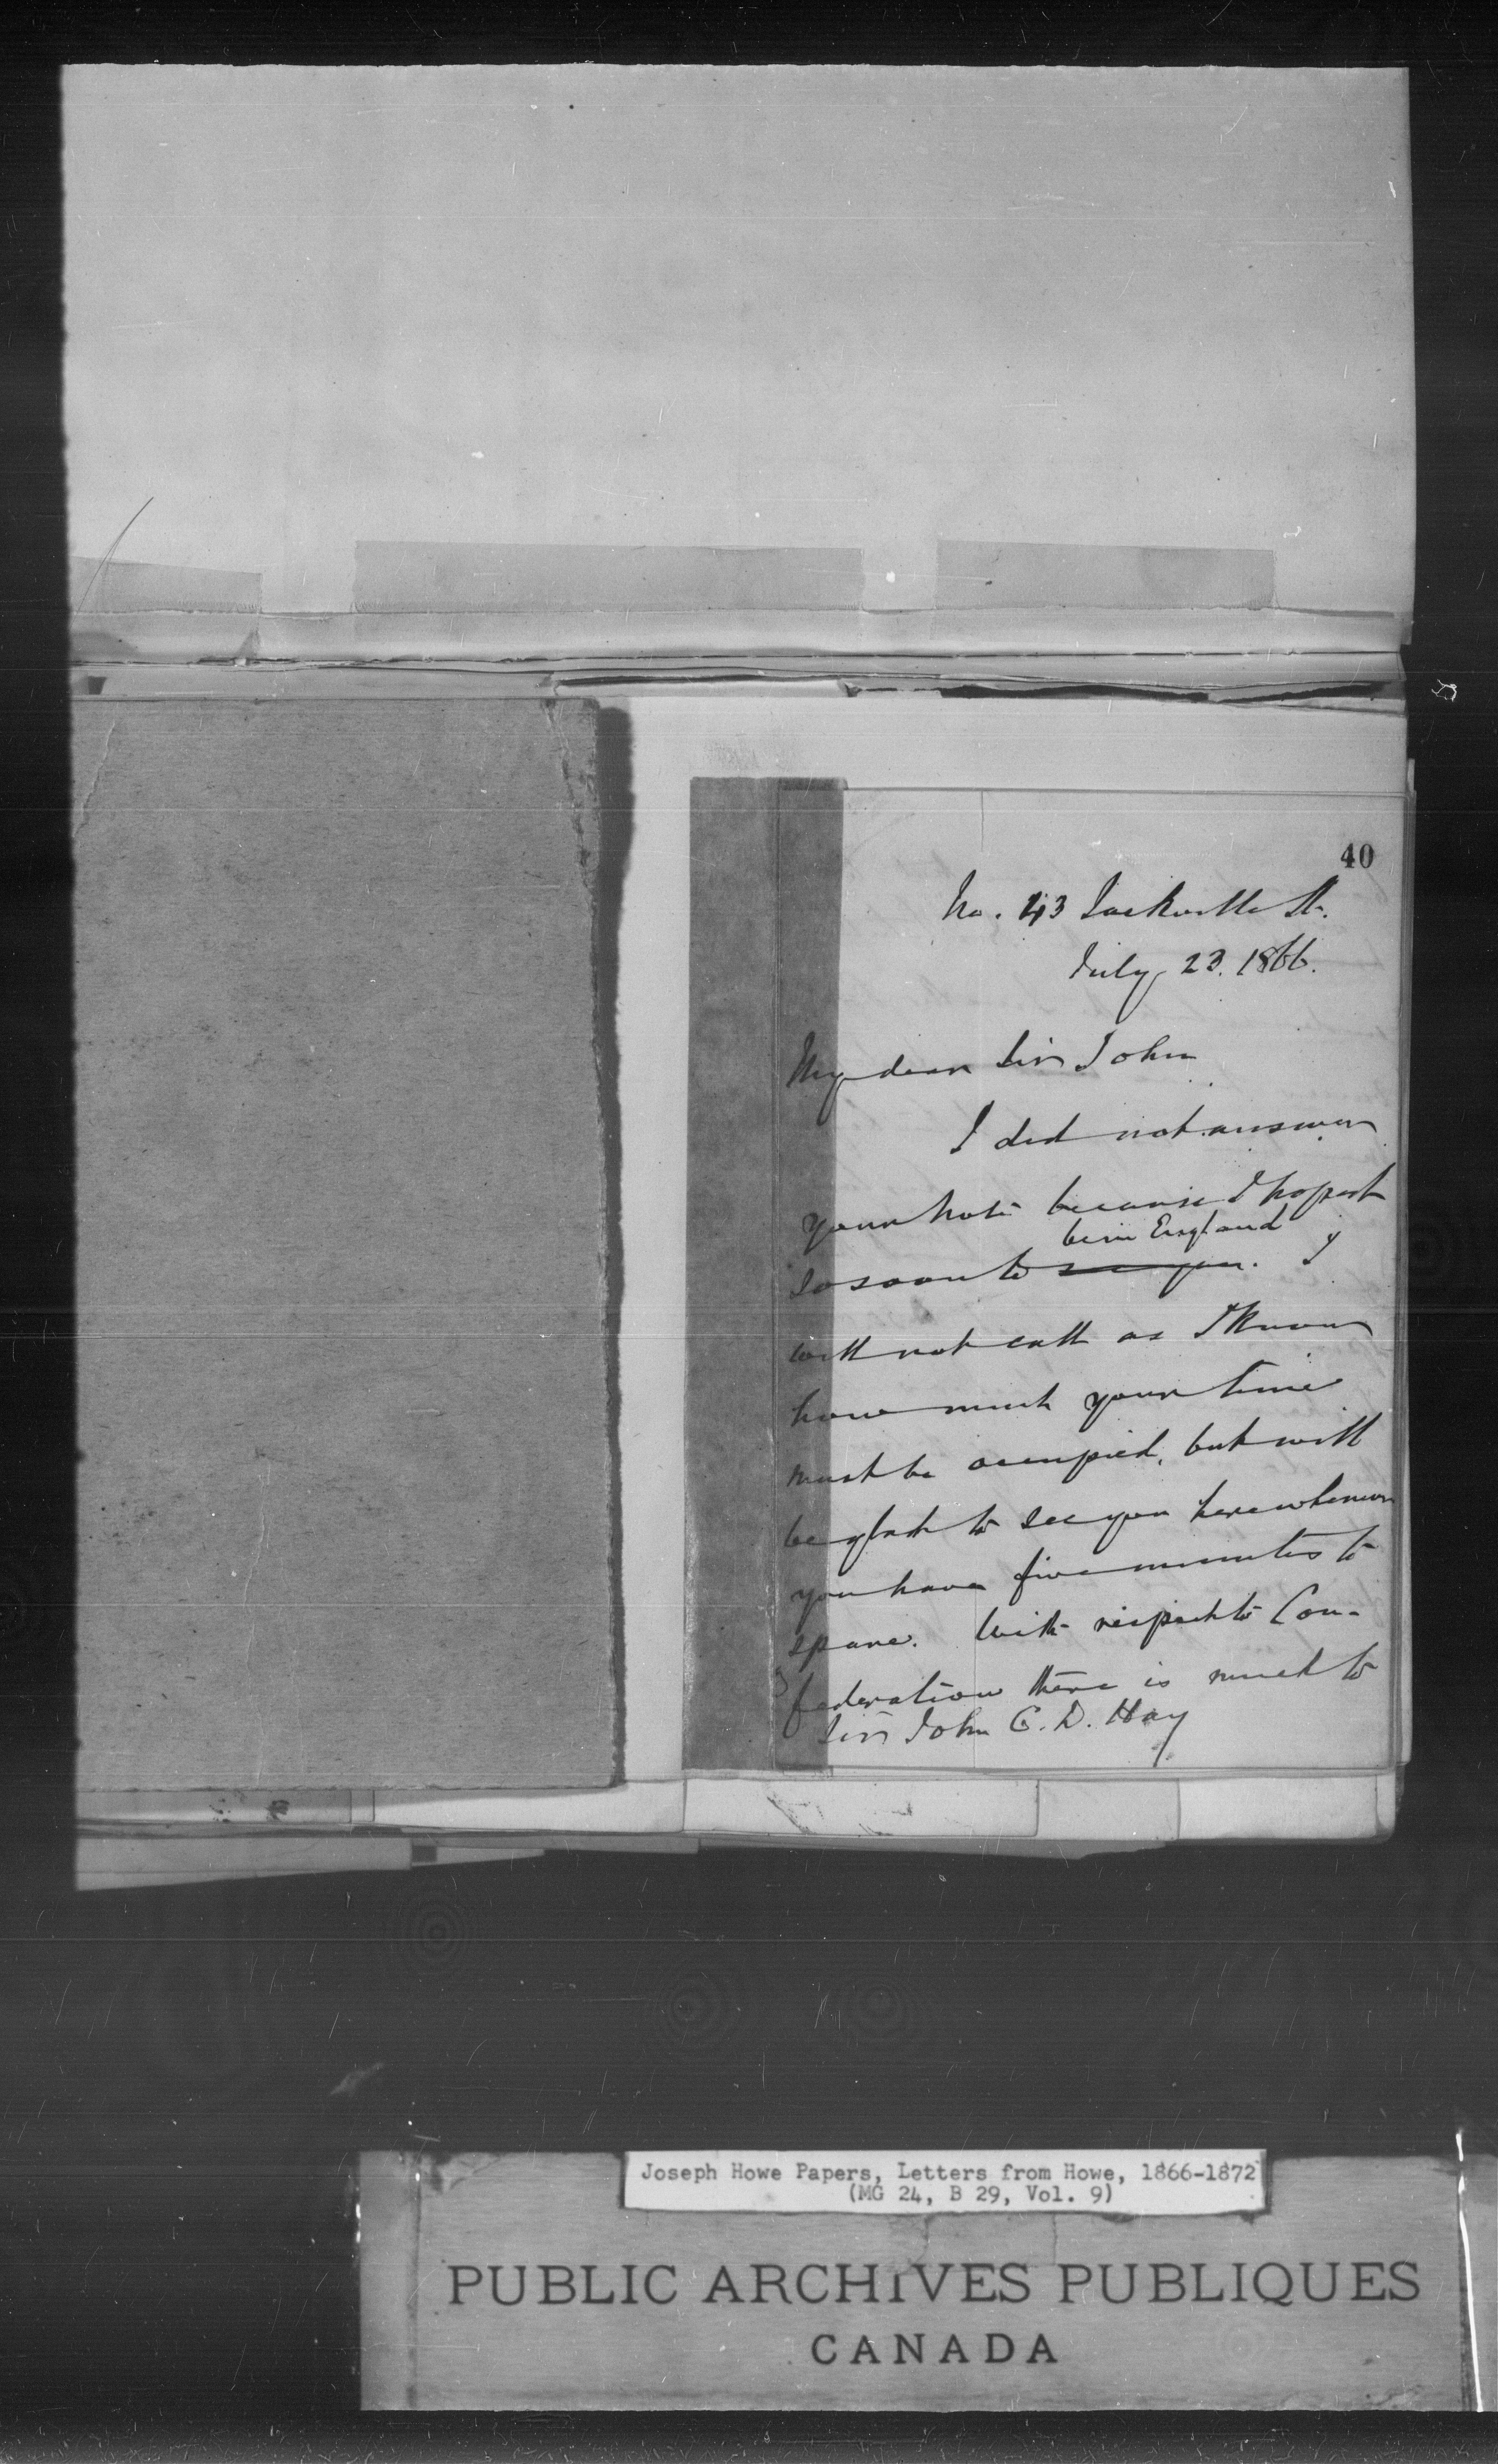 40
No. 43 Sackville St.
July 23. 1866.
My dear Sir John
I did not answer
your note because I hoped
be in England
so soon to see you. I
will not call as I know
how much your time
must be occupied, but will
be glad to see you here whenever
you have five minutes to
spare. With respect to Con-
federation there is much to
Sir John C. D. Hay
Joseph Howe Papers, Letters from Howe, 1866-1872
(MG 24, B 29, Vol. 9)
PUBLIC ARCHIVES PUBLIQUES
CANADA